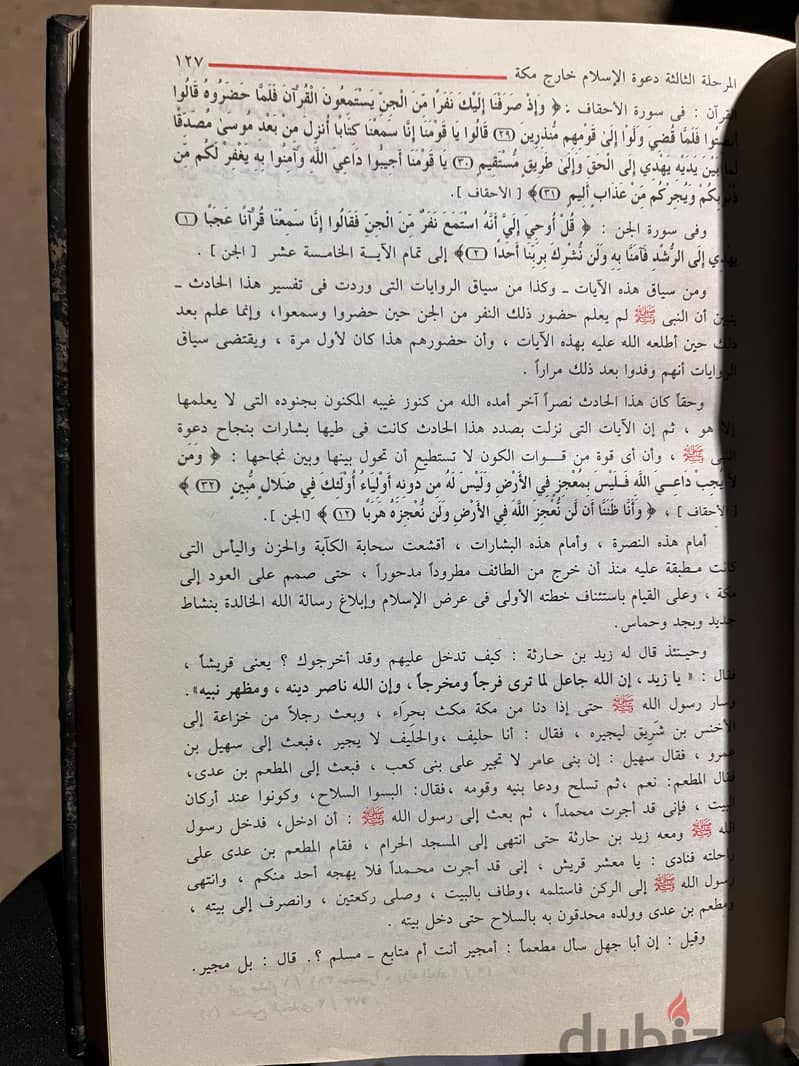 المرحلة الثالثة دعوة الإسلام خارج مكة ١٢٧
القرآن : فى سورة الأحقاف : ﴿ وَإِذْ صَرَفْنَا إِلَيْكَ نَفَرًا مِّنَ الْجِنِّ يَسْتَمِعُونَ الْقُرْآنَ فَلَمَّا حَضَرُوهُ قَالُوا
أَنصِتُوا فَلَمَّا قُضِيَ وَلَّوْا إِلَىٰ قَوْمِهِم مُّنذِرِينَ (٢٩) قَالُوا يَا قَوْمَنَا إِنَّا سَمِعْنَا كِتَابًا أُنزِلَ مِنْ بَعْدِ مُوسَىٰ مُصَدِّقًا
لِّمَا بَيْنَ يَدَيْهِ يَهْدِي إِلَى الْحَقِّ وَإِلَىٰ طَرِيقٍ مُّسْتَقِيمٍ (٣٠) يَا قَوْمَنَا أَجِيبُوا دَاعِيَ اللَّهِ وَآمِنُوا بِهِ يَغْفِرْ لَكُم مِّن
ذُنُوبِكُمْ وَيُجِرْكُم مِّنْ عَذَابٍ أَلِيمٍ (٣١)﴾ [ الأحقاف ].
وفى سورة الجن : ﴿ قُلْ أُوحِيَ إِلَيَّ أَنَّهُ اسْتَمَعَ نَفَرٌ مِّنَ الْجِنِّ فَقَالُوا إِنَّا سَمِعْنَا قُرْآنًا عَجَبًا (١)
يَهْدِي إِلَى الرُّشْدِ فَآمَنَّا بِهِ وَلَن نُّشْرِكَ بِرَبِّنَا أَحَدًا (٢)﴾ إلى تمام الآيـة الخامسة عشر [ الجن ] .
ومن سياق هذه الآيات ـ وكذا من سياق الروايات التى وردت فى تفسير هذا الحادث ـ
يتبين أن النبى ﷺ لم يعلم حضور ذلك النفر من الجن حين حضروا وسمعوا، وإنما علم بعد
ذلك حين أطلعه الله عليه بهذه الآيات ، وأن حضورهم هذا كان لأول مرة ، ويقتضى سياق
الروايات أنهم وفدوا بعد ذلك مراراً .
وحقاً كان هذا الحادث نصراً آخر أمده الله من كنوز غيبه المكنون بجنوده التى لا يعلمها
إلا هو ، ثم إن الآيات التى نزلت بصدد هذا الحادث كانت فى طيها بشارات بنجاح دعوة
النبى ﷺ ، وأن أى قوة من قـوات الكون لا تستطيع أن تحول بينها وبين نجاحها : ﴿ وَمَن
لَّا يُجِبْ دَاعِـيَ اللَّهِ فَـلَيْسَ بِمُعْجِزٍ فِي الْأَرْضِ وَلَيْسَ لَهُ مِن دُونِهِ أَوْلِيَاءُ أُولَٰئِكَ فِي ضَلَالٍ مُّبِينٍ (٣٢) ﴾
[ الأحقاف ] ، ﴿ وَأَنَّا ظَنَنَّا أَن لَّن نُّعْجِزَ اللَّهَ فِي الْأَرْضِ وَلَن نُّعْجِزَهُ هَرَبًا (١٢) ﴾ [الجن ].
أمام هذه النصرة ، وأمام هذه البشارات ، أقشعت سحابة الكآبة والحزن واليأس التى
كانت مـطبقة عليه منذ أن خرج من الطائف مطروداً مدحوراً ، حتى صمم على العود إلى
مكة ، وعلى القيام باستئناف خطته الأولى فى عرض الإسلام وإبلاغ رسالة الله الخالدة بنشاط
جديد وبجد وحماس.
وحيـنئذ قال له زيد بن حـارثة : كيف تدخل عليهم وقد أخرجوك ؟ يعنى قريشاً ،
فقال : « يا زيد ، إن الله جاعل لما ترى فرجاً ومخرجاً ، وإن الله ناصر دينه ، ومظهر نبيه».
وسار رسول الله ﷺ حتى إذا دنا من مكة مكث بحِرَاء ، وبعث رجلاً من خزاعة إلى
الأخنس بن شَرِيق ليجيره ، فقال : أنا حليف ،والحَلِيف لا يجير ،فبعث إلى سهيل بن
عمرو ، فقال سهيل : إن بنى عامر لا تجير على بنى كعب ، فبعث إلى المطعم بن عدى،
فقال المطعم: نعم ،ثم تسلح ودعا بنيه وقومه ،فقال: البسوا السلاح، وكونوا عند أركان
البيت ، فإنى قد أجرت محمداً ، ثم بعث إلى رسول الله ﷺ : أن ادخل، فدخل رسول
الله ﷺ ومعه زيد بن حارثة حتى انتهى إلى المسجد الحرام ، فقام المطعم بن عدى على
راحلته فنادى : يا معشر قريش ، إنى قد أجرت محـمداً فلا يهجه أحد منكم ، وانتهى
رسول الله ﷺ إلى الركن فاستلمه ،وطاف بالبيت ، وصلى ركعتين ، وانصرف إلى بيته ،
ومطعم بن عدى وولده محدقون به بالسلاح حتى دخل بيته .
وقيل : إن أبا جهل سأل مطعماً : أمجير أنت أم متابع ـ مسلم ؟. قال : بل مجير.